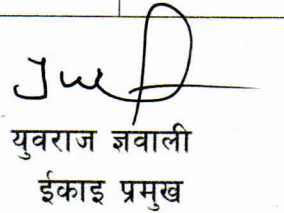 युवराज ज्ञवाली
ईकाइ प्रमुख